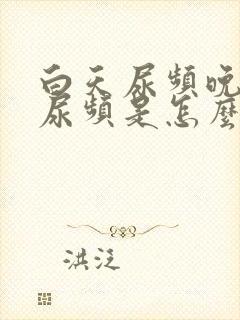 白天尿頻晚
尿頻是怎麼
洪泛